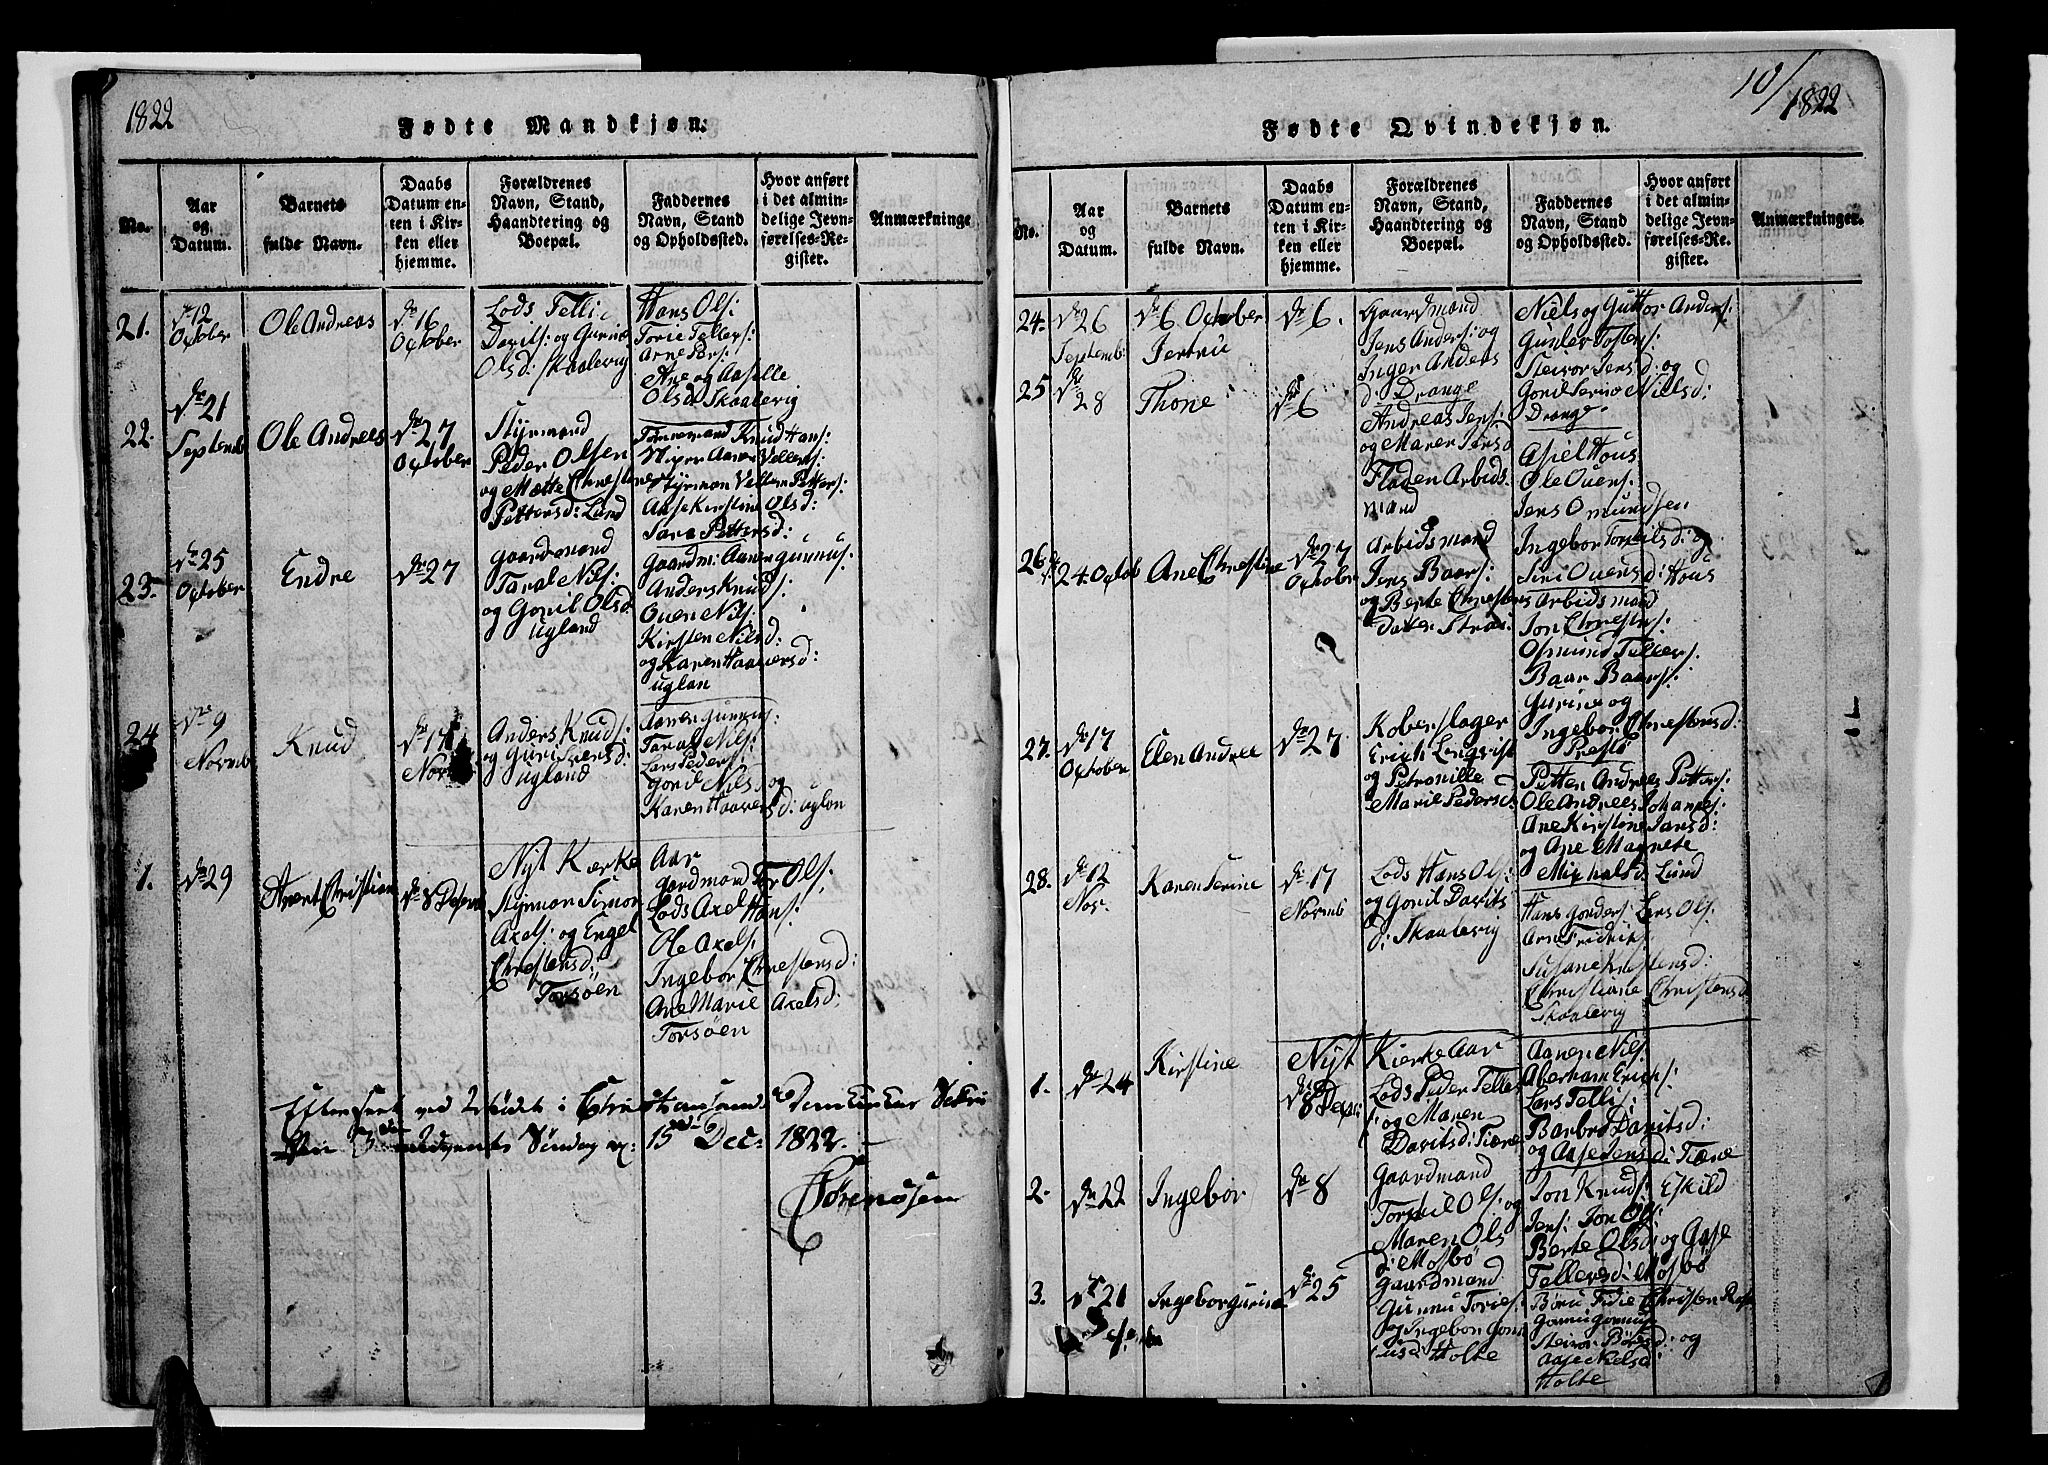 1822
Fødte Mandkjøn.
No.
Aar
og
Datum.
Barnets
fulde Navn.
Daabs
Datum en-
ten i Kir-
ken eller
hjemme.
Forældrenes
Navn, Stand,
Haandtering og
Boepæl.
Faddernes
Navn, Stand
og Opholdssted.
Hvor anført
i det almin-
delige Jevn-
førelses-Re-
gister.
Anmærkninge
21.
12
October
Ole Andreas
16
October
Lods Telli
Davits: og Gurine
Olsd: Skaalevig
Hans Ols:
Torie Tellers:
Arne Pers:
Ane og Aaselle
Olsd Skaalevig
22.
21
Septemb
Ole Andrees
27
October
Styrmand
Peder Olsen
og Mætte Chrestens
Pettersd: Lund
Tømmermand Knud Hans:
Aanen Vellems:
Styrman Vellem Petters:
Aase Kirstine Olsd:
Sara Pettersd:
23.
25
October
Endre
27
Gaardmand
Taral Nils:
og Goril Olsd:
Ugland
Gaardm: Aanen Gunnus:
Anders Knuds:
Ouen Nils:
Kirsten Nilsd:
og Karen Haaversd:
Uglan
24
9
Novmb
Knud
17
Nov
Anders Knuds:
og Guri Iversd:
Ugland
Aanen Gunnus:
Taral Nils:
Lars Peders:
Goril Nilsd og
Karen Haaversd: Uglan
Nyt Kærke Aar
1.
29
Anent Christian
8 Desemb
Styrman Simon
Axels: og Engel
Chrestensd:
Torsøen
Gardmand Tor Ols:
Lods Axel Hans:
Ole Axels:
Ingebor Chrestensd:
Ane Marie Axelsd:
Torsøen
Efterseet ved Mødet i Christiansands Domkirkes Sakri
stie 3die Advents Søndag 15de Dec: 1822.
Sørensen
10/
1822
Fødte Qvindekjøn.
No.
Aar
og
Datum.
Barnets
fulde Navn.
Daabs
Datum en-
ten i Kir-
ken eller
hjemme.
Forældrenes
Navn, Stand,
Haandtering og
Boepæl.
Faddernes
Navn, Stand
og Opholdssted.
Hvor anført
i det almin-
delige Jevn-
førelses-Re-
gister.
Anmærkninger.
24.
26
Septemb:
6 October
Jertru
6.
Gaardmand
Jens Anders: og
Inger Anders
d: Drange
Niels og Guttor Anders:
Gunder Tostens:
Steivor Jensd: og
Goril Serine Nielsd:
Drange
25
28
Thone
6
Andreas Jens:
og Maren Jensd
Fladen Arbids
mand
Asiel Hous
Ole Ouens:
Jens Omundsen
Ingebor Torkilsd: og
Siri Ouensd: Hous
26
24. Octob
Ane Chrestine
27
October
Arbidsmand
Jens Baars:
og Berte Chrestens
Dater Strai
Arbidsmand
Jon Chrestens:
Osmund Tellers:
Baar Baars:
Gurine og
Ingebor Chrestensd:
Prestø
27.
17
October
Elen Andree
27
Koberslager
Erich Lenqvist
og Petronille
Marie Pedersd:
Petten Andrees Petters:
Ole Andrees Johannes:
Ane Kirstine Jansd:
og Ane Magnete
Michalsd: Lund
28.
12
Nov.
Karen Serine
17
Novmb
Lods Hans Ols:
og Goril Davits
d: Skaalevig
Hans Gonders: Lars Ols:
Arn Fridrik
Susane Krestensd:
Christiane Christensd:
Skaalevig
Nyt Kierke Aar
1.
24
Kirstine
8 Des:
Lods Peder Teller
s: og Maren
Davitsd: Tiæne
Aanen Nils:
Aberham Erichs:
Lars Telli:
Barbro Davitsd:
og Aase Jensd: Tiæne
2.
22
Ingebor
8
Gaardmand
Torkil Ols: og
Maren Ols
d: Mosbø
Jon Knuds: Eskild
Jens: Jon Ols:
Berte Olsd: og Gase
Tellersd: Mosbø
3.
21
Ingebor gurine
25
Gaardmand
Gunnu Tories:
og Ingebor Gonn
usd: Holte
Børu Tidie Christen
Steivor Børusd: og
Aase Kelsd:
Holte